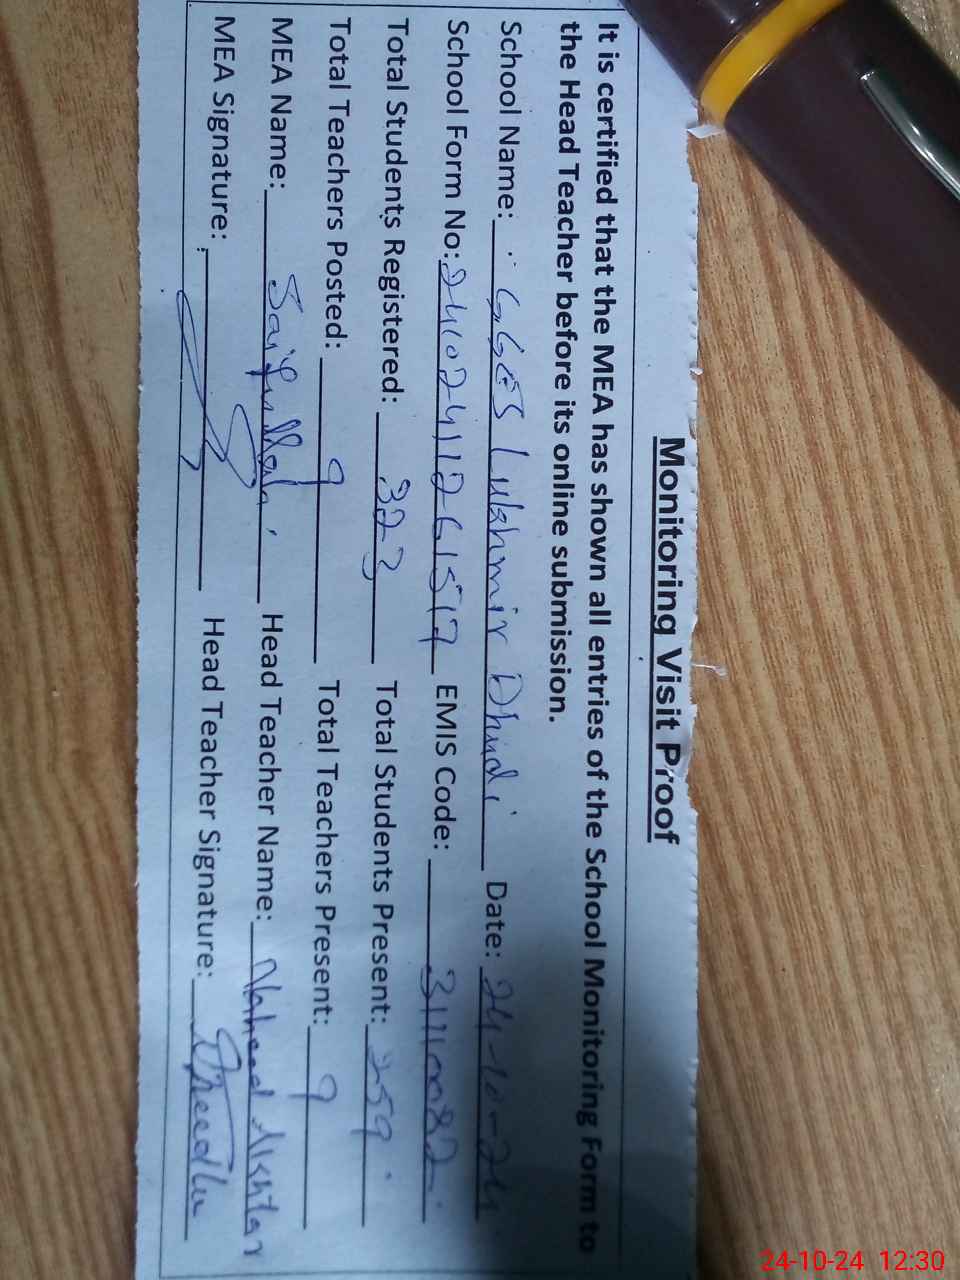 Monitoring Visit Proof
It is certified that the MEA has shown all entries of the School Monitoring Form to
the Head Teacher before its online submission.
School Name: GGES Lukhmir Dhindi Date: 24-10-24
School Form No: 24102411261517 EMIS Code:
Total Students Registered: 323 Total Students Present: 259
Total Teachers Posted: 9 Total Teachers Present: 9
MEA Name: Saifullah Head Teacher Name: Naheed Akhtar
MEA Signature: Head Teacher Signature:
24-10-24 12:30